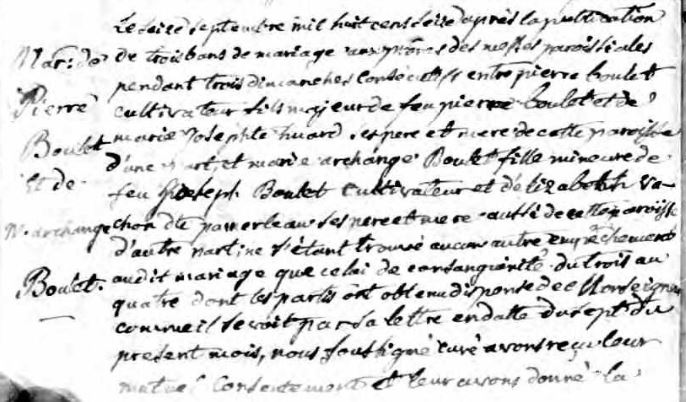 Le seize septembre mil huit cent seize après la publication
de trois bans de mariage aux prônes des messes paroissiales
pendant trois dimanches consécutifs entre pierre boulet
cultivateur fils majeur de feu pierre boulet et de
marie Josephte huard ses pere et mere de cette paroisse
d'une part, et marie archange Boulet fille mineure de
feu Joseph Boulet cultivateur et d'élizabeth va-
chon dit pamerleau ses pere et mere aussi de cette paroisse
d'autre part ne s'étant trouvé aucun autre empêchement
audit mariage que celui de consanguinité du trois au
quatre dont les partis ont obtenu dispense de Monseigneur
comme il se voit par sa lettre en datte du sept du
present mois, nous soussigné curé avons reçu leur
mutuel consentement et leur avons donné la
Mar: de
Pierre
Boulet
et de
M. archange
Boulet.